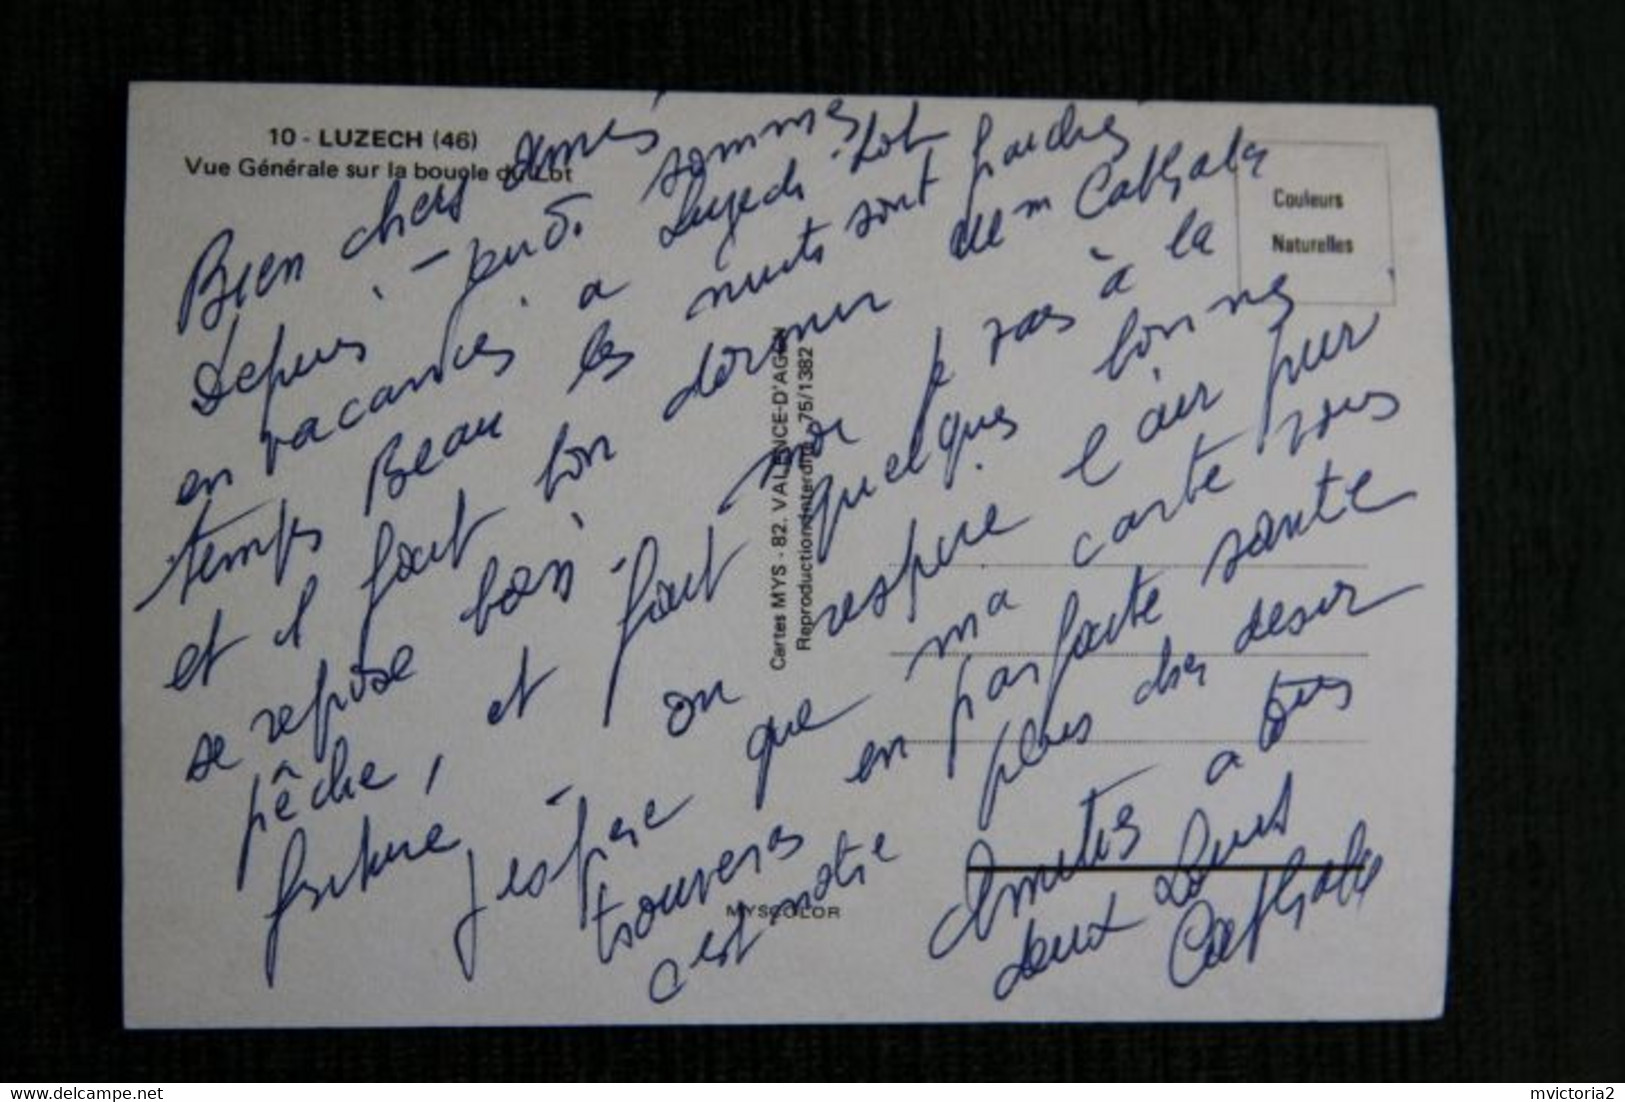 10 - LUZECH (46)
Vue Générale sur la boucle du Lot
Couleurs
Naturelles
Cartes MYS - 82. VALENCE-D'AGEN
Reproduction interdite 75/1382
MYSCOLOR
Bien chers amis
Depuis jeudi sommes
en vacances a Luzech Lot
temps Beau les nuits sont fraiches
et il fait bon dormir
se repose bien moi je vais à la
pêche, et fait quelques bonnes
friture on respire l'air pur
J'espère que ma carte vous
trouveras en parfaite santé
c'est notre plus cher desir
Amities a tous
deux Louis
delcampe.net
mvictoria2